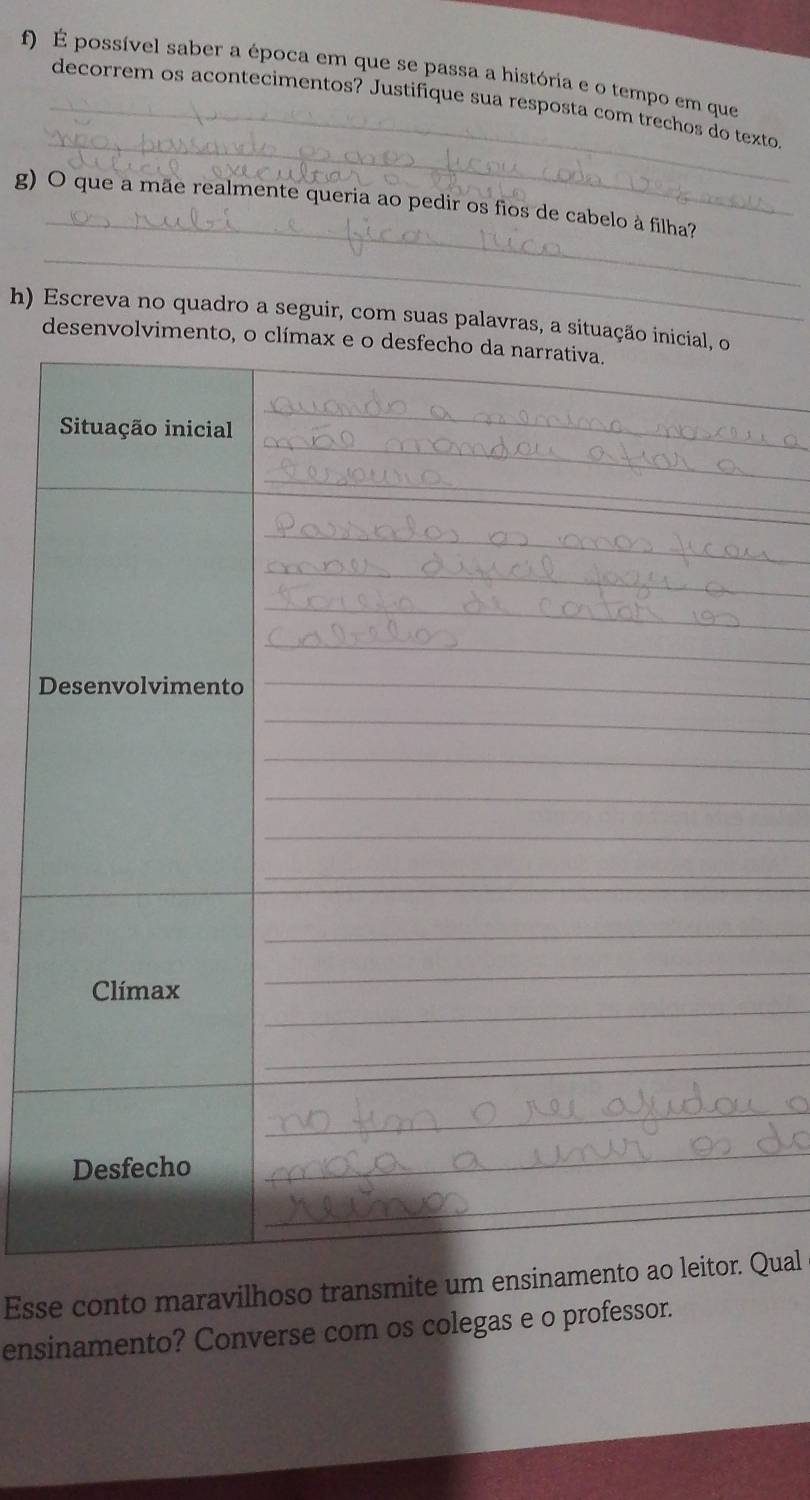 f) É possível saber a época em que se passa a história e o tempo em que
decorrem os acontecimentos? Justifique sua resposta com trechos do texto.
não, passando os anos ficou cada vez mais
dificil
g) O que a mãe realmente queria ao pedir os fios de cabelo à filha?
os rubi e ficar rica
h) Escreva no quadro a seguir, com suas palavras, a situação inicial, o
desenvolvimento, o clímax e o desfecho da narrativa.
Situação inicial
quando a menina nasceu a
mão mandou afiar a
tesoura
Desenvolvimento
Passados os anos ficou
dificil fazer a
de cortar os
cabelos
Clímax
Desfecho
no fim o rei ajudou a
moça a unir os do
reinos
Esse conto maravilhoso transmite um ensinamento ao leitor. Qual
ensinamento? Converse com os colegas e o professor.